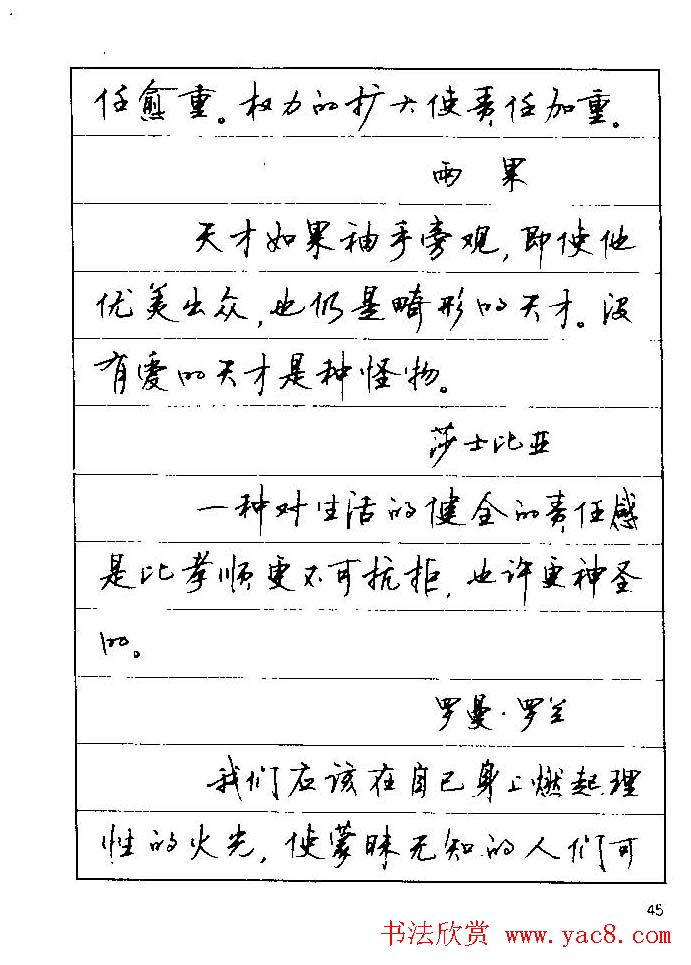 任愈重。权力的扩大使责任加重。
雨果
天才如果袖手旁观，即使他
优美出众，也仍是畸形的天才。没
有爱的天才是种怪物。
莎士比亚
一种对生活的健全的责任感
是比孝顺更不可抗拒，也许更神圣
的。
罗曼·罗兰
我们应该在自己身上燃起理
性的火光，使蒙昧无知的人们可
45
书法欣赏 www.yac8.com